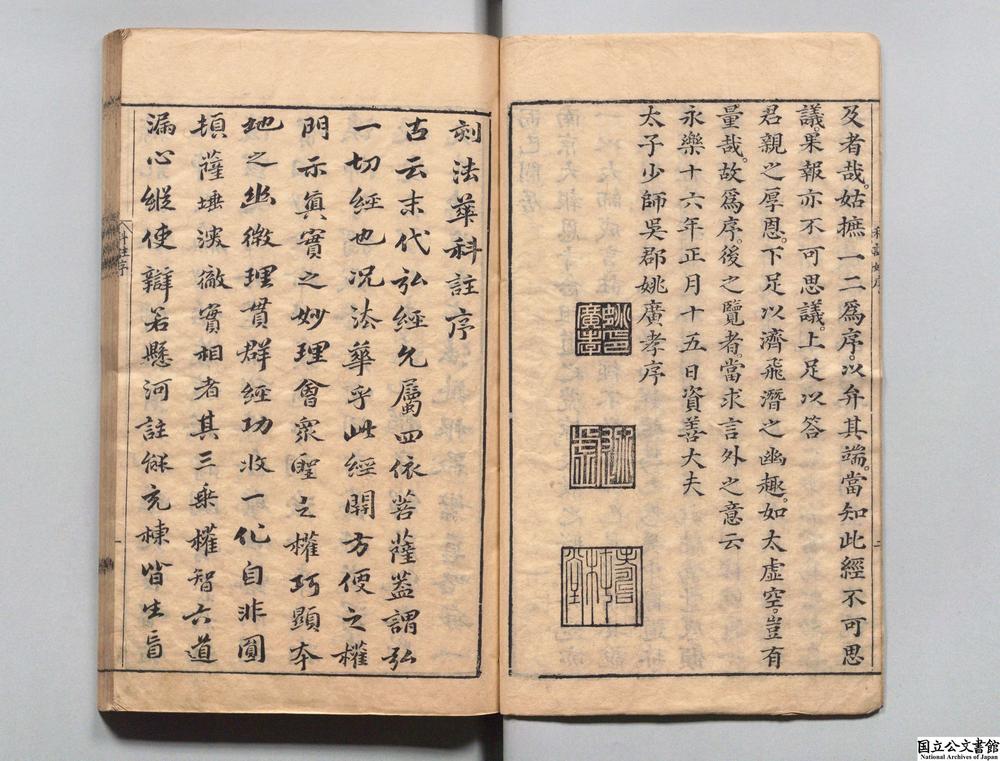 及者哉。姑摭一二爲序。以弁其端。當知此經不可思
議。果報亦不可思議。上足以答
君親之厚恩。下足以濟飛潛之幽趣。如太虛空。豈有
量哉。故爲序。後之覽者。當求言外之意云
永樂十六年正月十五日資善大夫
太子少師吳郡姚廣孝序
刻法華科註序
古云末代弘經允屬四依菩薩蓋謂弘
一切經也況法華乎此經開方便之權
門示眞實之妙理會衆聖之權巧顯本
地之幽微理貫群經功收一化自非圓
頂薩埵洞徹實相者其三乘權智六道
漏心縱使辯若懸河註疏充棟皆生盲
科註序
国立公文書館
National Archives of Japan